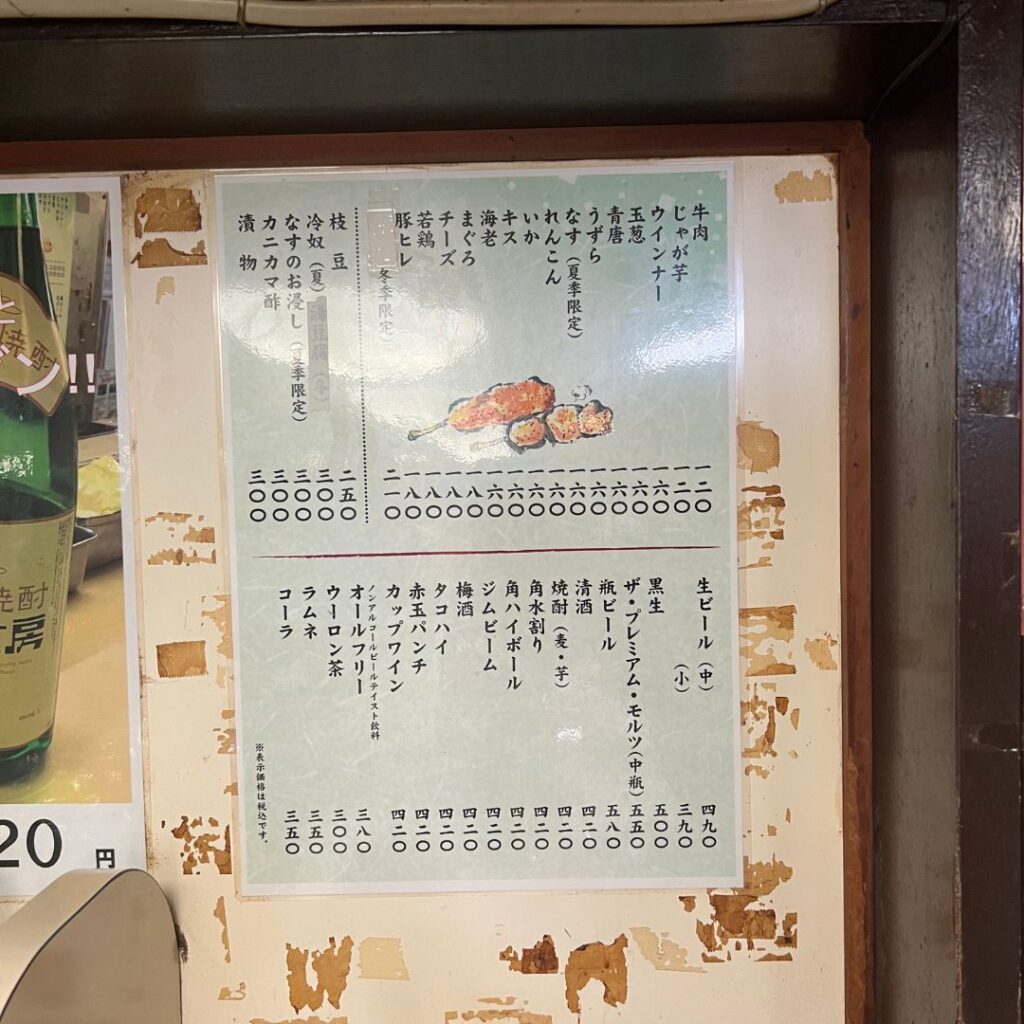 牛肉 一二〇
じゃが芋 一二〇
ウインナー 一六〇
玉葱 一六〇
青唐 一六〇
うずら 一六〇
なす（夏季限定） 一六〇
れんこん 一六〇
いか 一六〇
キス 一六〇
海老 一六〇
まぐろ 一八〇
チーズ 一八〇
若鶏 一八〇
豚ヒレ 一八〇
冬季限定） 二一〇
枝豆 二五〇
冷奴（夏） 三〇〇
なすのお浸し（夏季限定） 三〇〇
カニカマ酢 三〇〇
漬物 三〇〇
生ビール（中） 四九〇
（小） 三九〇
黒生 五〇〇
ザ・プレミアム・モルツ（中瓶） 五五〇
瓶ビール 五八〇
清酒 四二〇
焼酎（麦・芋） 四二〇
角水割り 四二〇
角ハイボール 四二〇
ジムビーム 四二〇
梅酒 四二〇
タコハイ 四二〇
赤玉パンチ 四二〇
カップワイン 四二〇
ノンアルコールビールテイスト飲料
オールフリー 三八〇
ウーロン茶 三〇〇
ラムネ 三五〇
コーラ 三五〇
※表示価格は税込です。
焼酎
!!
焼酎
房
20 円